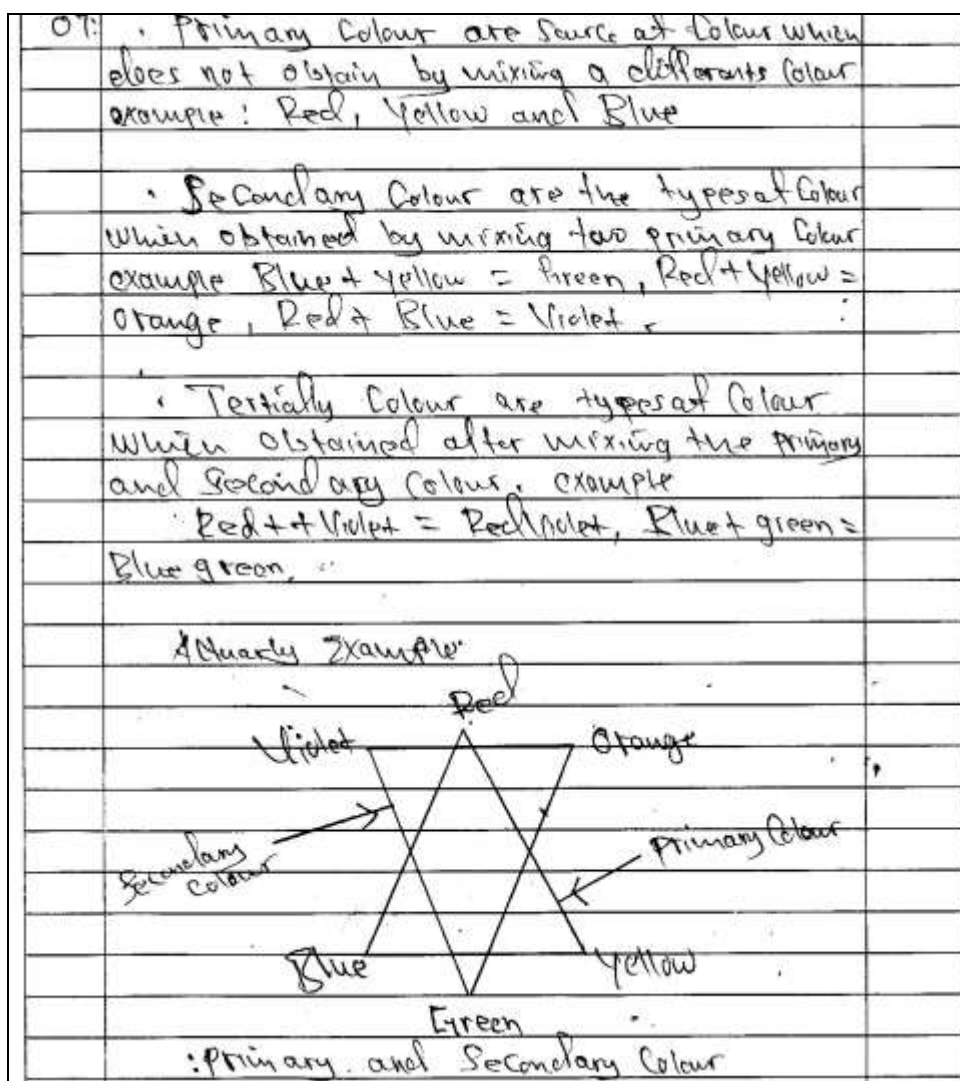 07: · Primary Colour are Source of Colour which
does not obtain by mixing a differents Colour
example: Red, Yellow and Blue
· Secondary Colour are the types of Colour
which obtained by mixing two primary Colour
example Blue + yellow = Green, Red + Yellow =
Orange, Red + Blue = Violet.
· Tertially Colour are types of Colour
which obtained after mixing the primary
and Secondary Colour. example
Red + + Violet = Red Violet, Blue + green =
Blue green.
Example
Red
Violet Orange
Secondary
Colour
Primary Colour
Blue Yellow
Green
: primary and Secondary Colour